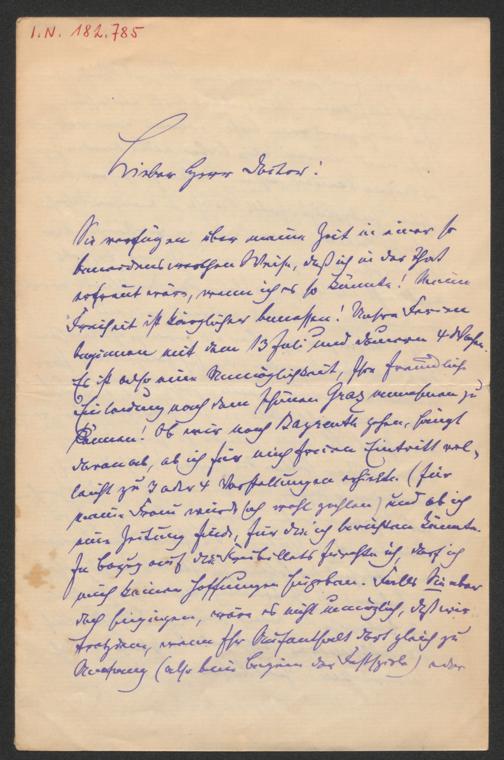 I.N. 182.785
Lieber Herr Doctor!
Sie verfügen über meine Zeit in einer so
benerdenswerthen Weise, daß ich in der That
erfreut wäre, wenn ich es so könnte! Meine
Freiheit ist kärglicher bemessen! Unsre Ferien
beginnen mit dem 13 Juli und dauern 4 Wochen.
Es ist also eine Unmöglichkeit, Ihre freundliche
Einladung nach dem schönen Graz annehmen zu
können! Ob wir nach Bayreuth gehen, hängt
davon ab, ob ich für mich freien Eintritt viel-
leicht zu 3 oder 4 Vorstellungen erhielte. (für
meine Frau würde ich wohl zahlen) und ob ich
eine Zeitung finde, für die ich berichten könnte.
In Bezug auf die Freibillets fürchte ich, darf ich
mich keinen Hoffnungen hingeben. Falls Sie aber
doch hingingen, wäre es nicht unmöglich, daß wir
trotzdem, wenn Ihr Aufenthalt dort gleich zu
Anfang (also beim Beginn der Festspiele) oder